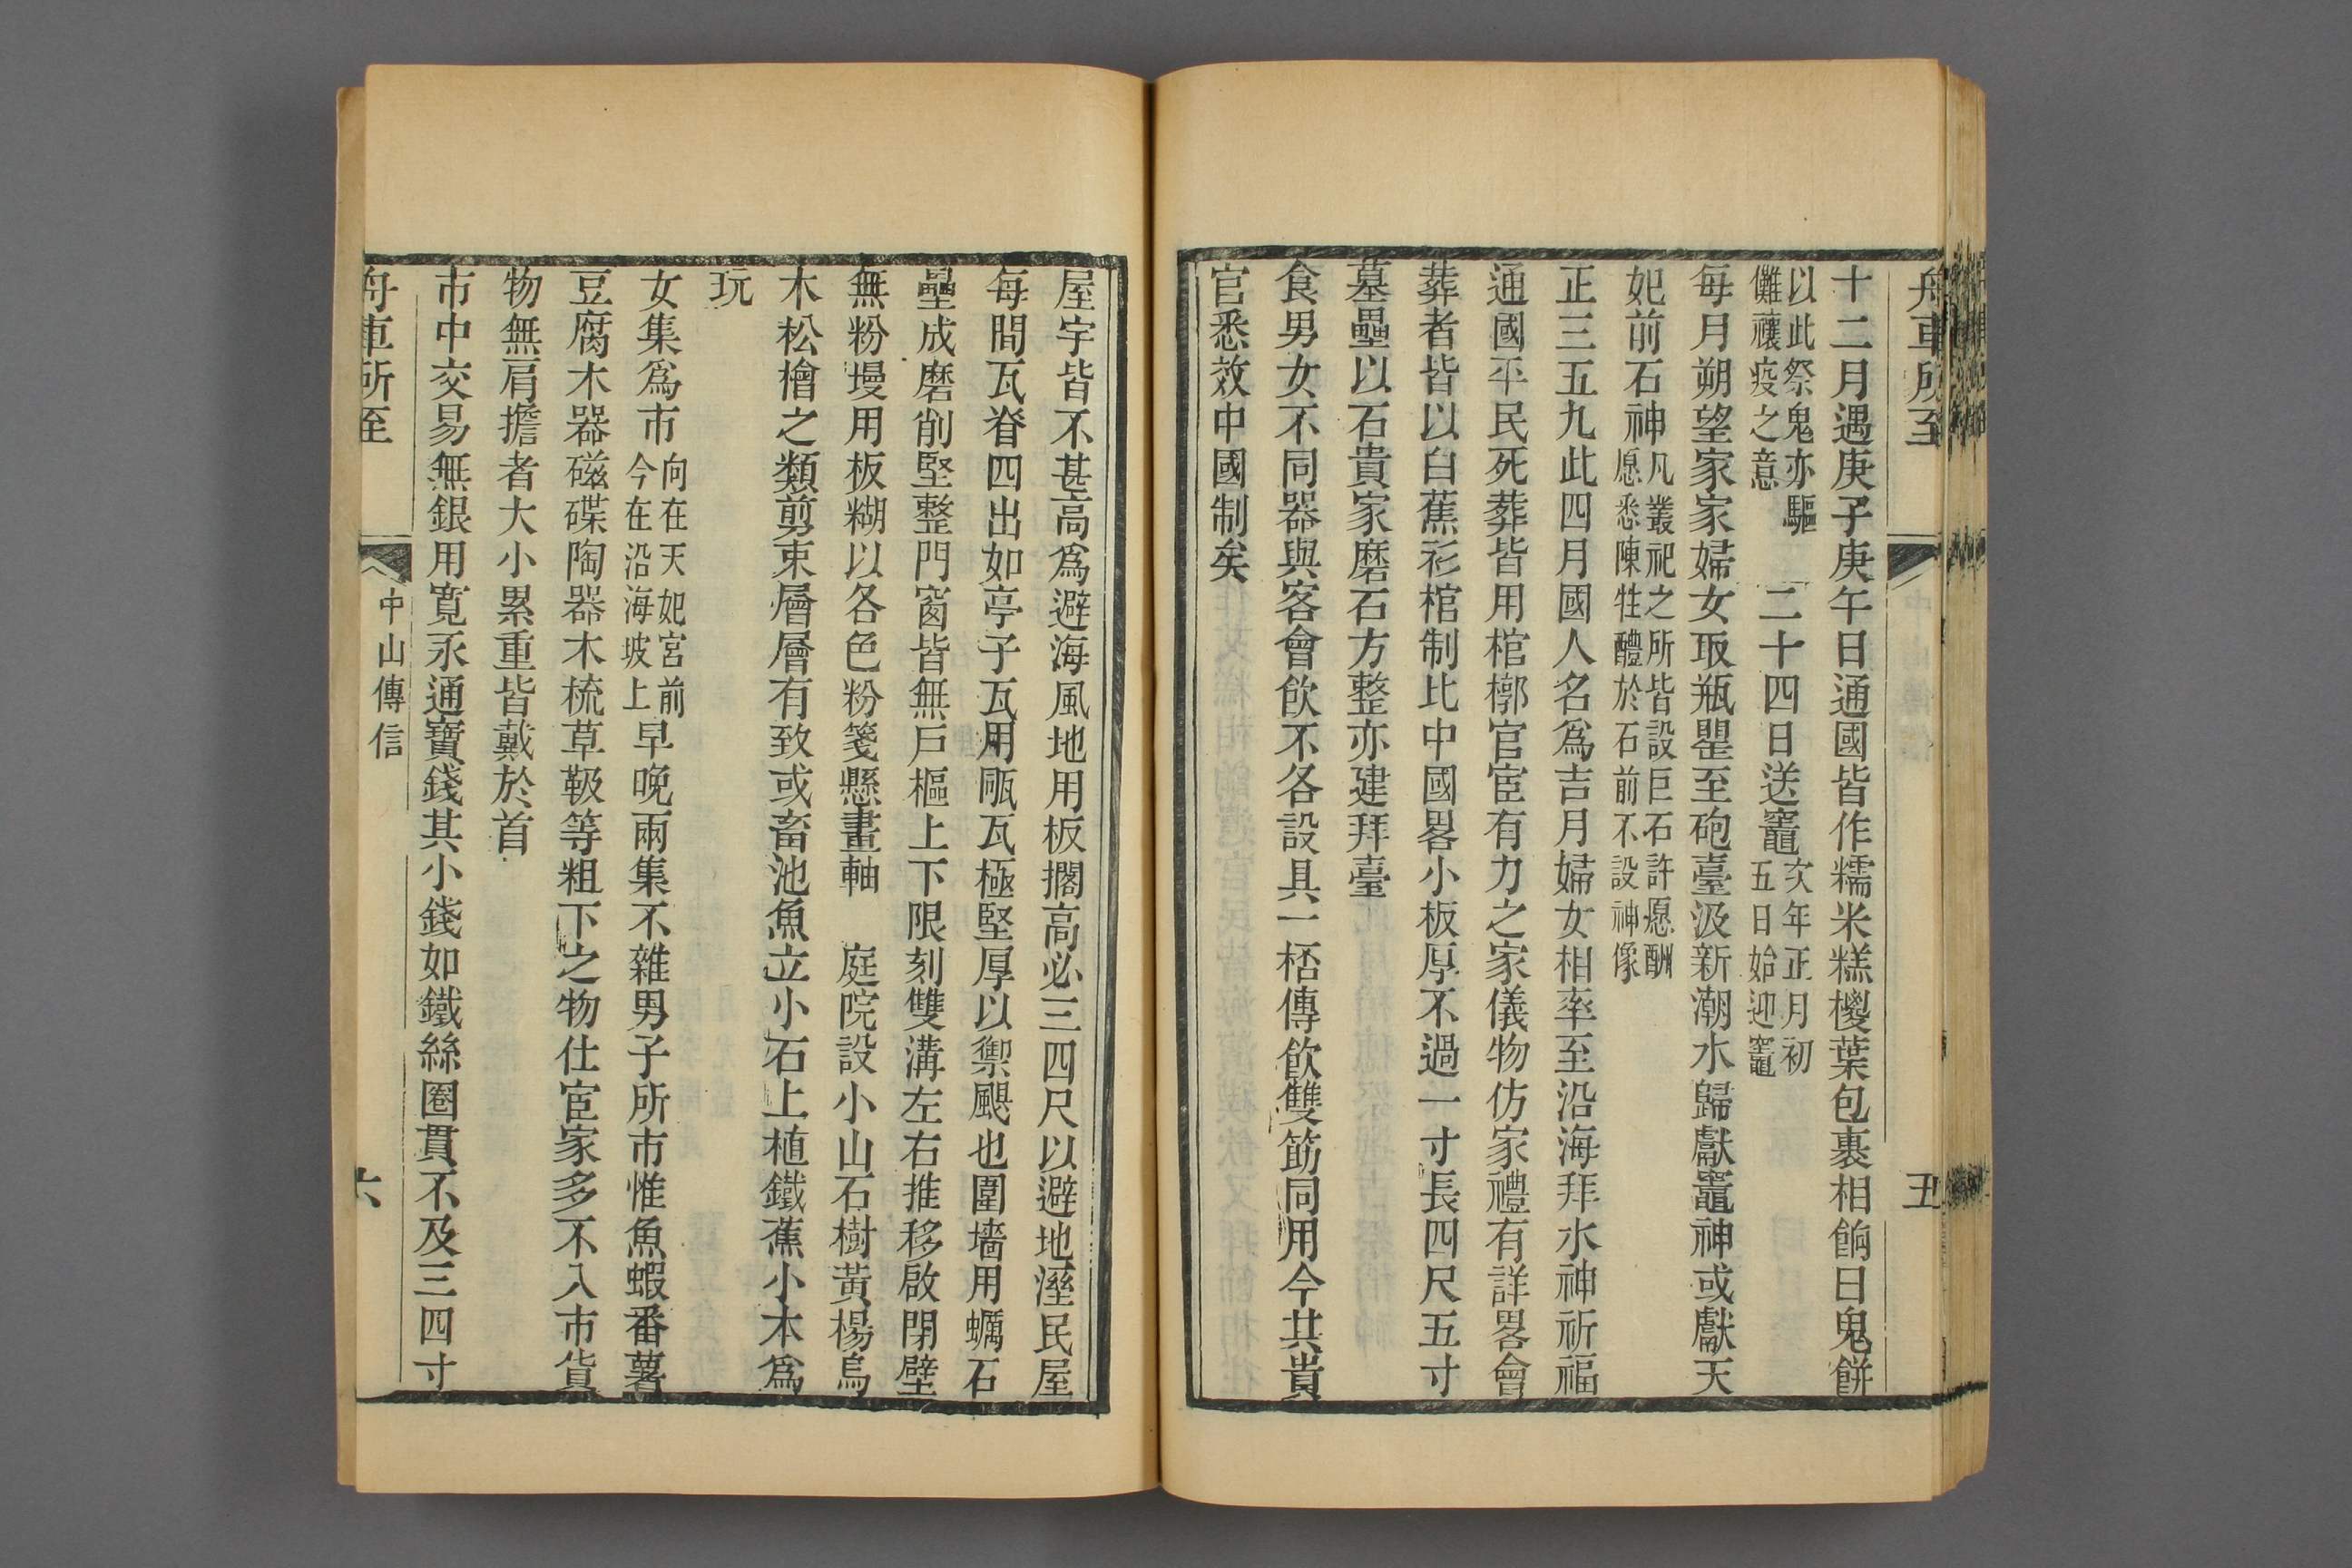 舟車所至
五
十二月遇庚子庚午日通國皆作糯米糕椶葉包裹相餉曰鬼餅
以此祭鬼亦驅
儺禳疫之意
二十四日送竈
次年正月初
五日始迎竈
每月朔望家家婦女取瓶罌至砲臺汲新潮水歸獻竈神或獻天
妃前石神
凡叢祀之所皆設巨石許愿酬
愿悉陳牲醴於石前不設神像
正三五九此四月國人名爲吉月婦女相率至沿海拜水神祈福
通國平民死葬皆用棺槨官宦有力之家儀物仿家禮有詳畧會
葬者皆以白蕉衫棺制比中國畧小板厚不過一寸長四尺五寸
墓壘以石貴家磨石方整亦建拜臺
食男女不同器與客會飲不各設具一桮傳飲雙筯同用今其貴
官悉效中國制矣
屋宇皆不甚高爲避海風地用板擱高必三四尺以避地溼民屋
每間瓦脊四出如亭子瓦用㼧瓦極堅厚以禦颶也圍墻用蠣石
壘成磨削堅整門窗皆無戶樞上下限刻雙溝左右推移啟閉壁
無粉墁用板糊以各色粉箋懸畫軸　庭院設小山石樹黃楊烏
木松檜之類剪束層層有致或畜池魚立小石上植鐵蕉小木爲
玩
女集爲市
向在天妃宮前
今在沿海坡上
早晚兩集不雜男子所市惟魚蝦番薯
豆腐木器磁碟陶器木梳草靸等粗下之物仕宦家多不入市貨
物無肩擔者大小累重皆戴於首
市中交易無銀用寬永通寶錢其小錢如鐵絲圈貫不及三四寸
舟車所至
中山傳信
六